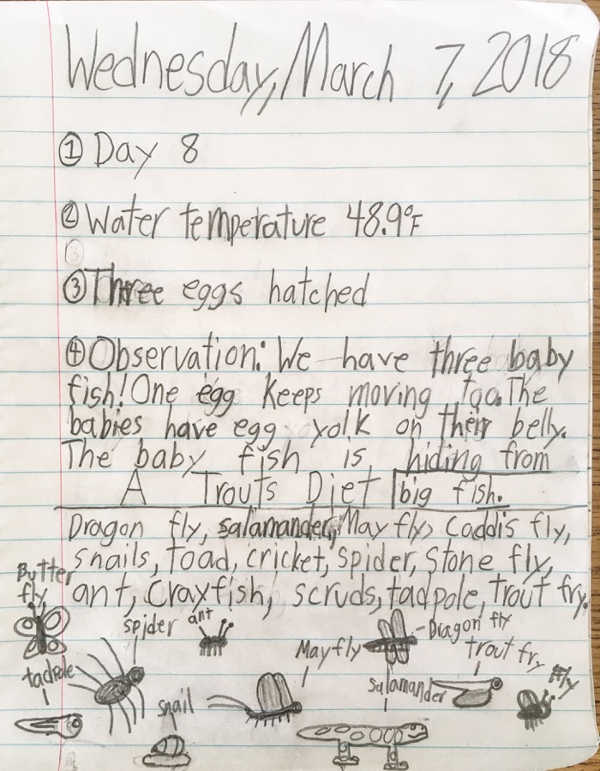 Wednesday, March 7, 2018
① Day 8
② Water temperature 48.9°F
③ Three eggs hatched
④ Observation: We have three baby
fish! One egg keeps moving too. The
babies have egg yolk on their belly.
The baby fish is hiding from
big fish.
A Trouts Diet
Dragon fly, salamander, May fly, Caddis fly,
snails, toad, cricket, spider, Stone fly,
ant, Crayfish, scruds, tadpole, trout fry.
Butter
fly
spider
ant
Mayfly
Dragon fly
trout fry
Fly
tadpole
snail
salamander